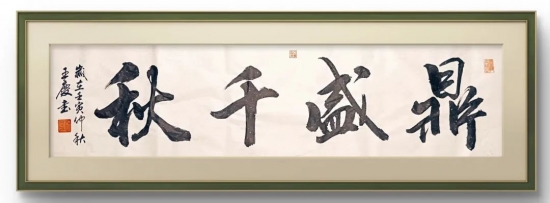 鼎盛千秋
歲在壬寅仲秋
王慶書